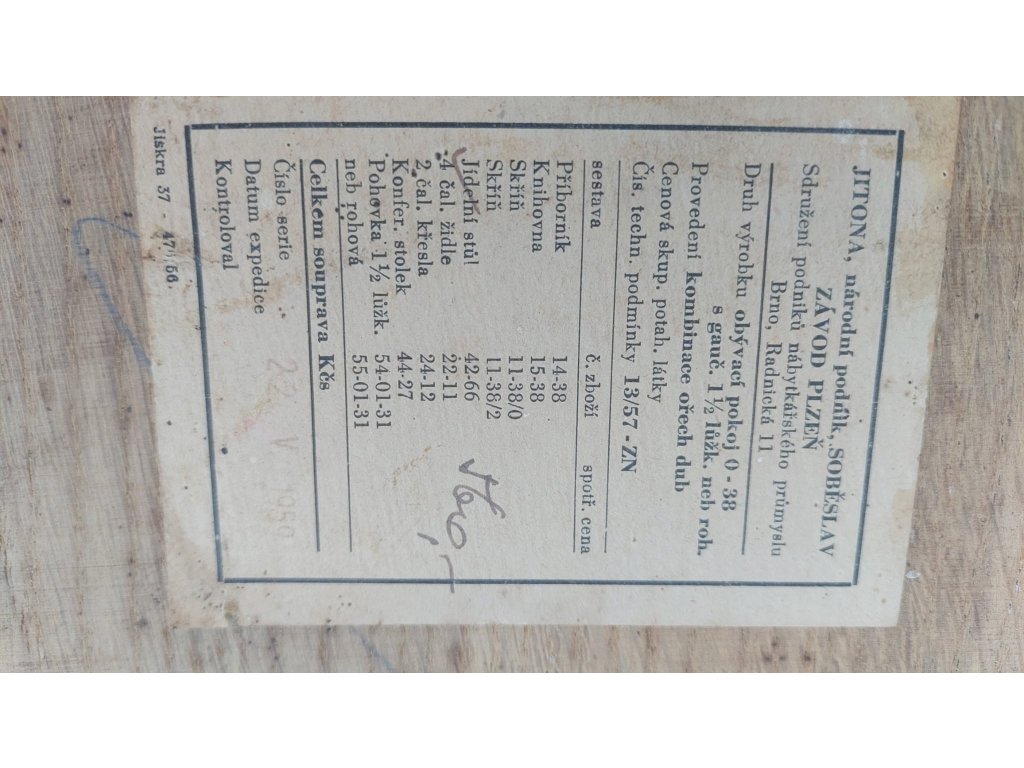 JITONA, národní podnik, SOBĚSLAV
ZÁVOD PLZEŇ
Sdružení podniků nábytkářského průmyslu
Brno, Radnická 11
Druh výrobku obývací pokoj 0-38
s gauč. 1½ lůžk. neb roh.
Provedení kombinace ořech dub
Cenová skup. potah. látky
Čís. techn. podmínky 13/57-ZN
sestava č. zboží spotř. cena
Příborník 14-38
Knihovna 15-38
Skříň 11-38/0
Skříň 11-38/2
Jídelní stůl 42-66
4 čal. židle 22-11
2 čal. křesla 24-12
Konfer. stolek 44-27
Pohovka 1½ lůžk. 54-01-31
neb rohová 55-01-31
Celkem souprava Kčs
Číslo serie
Datum expedice
Kontroloval
Jiskra 37 -